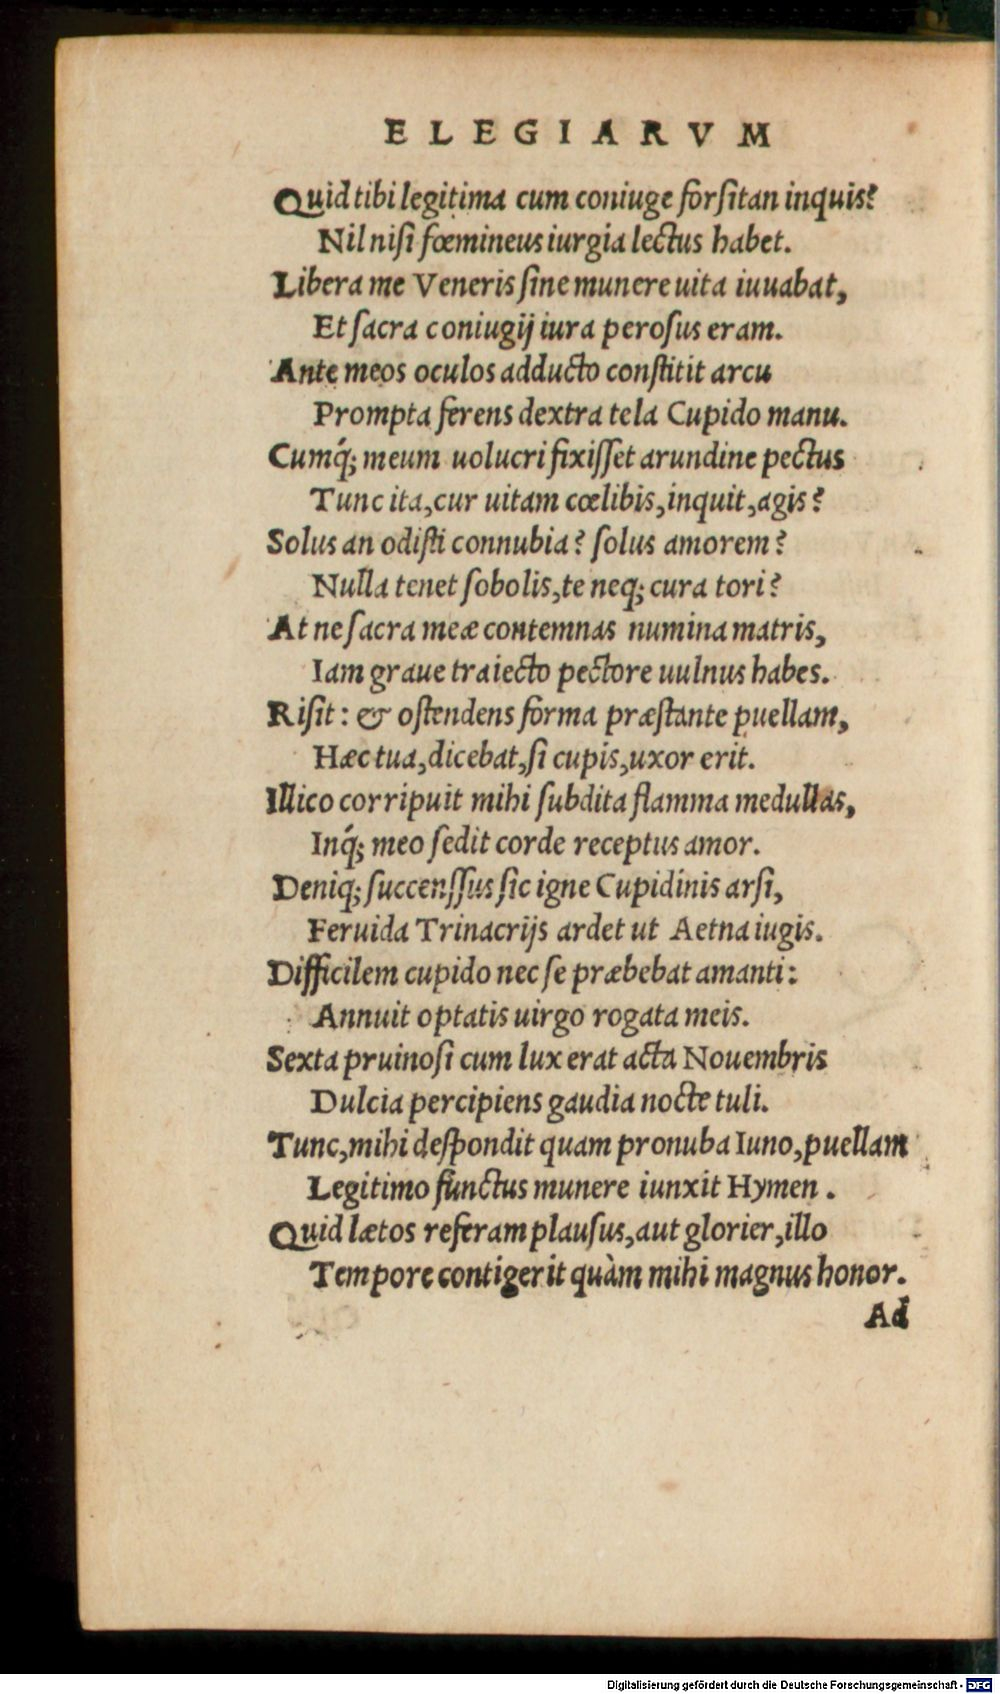 ELEGIARVM
Quid tibi legitima cum coniuge forſitan inquis?
Nil niſi fœmineus iurgia lectus habet.
Libera me Veneris ſine munere uita iuuabat,
Et ſacra coniugij iura peroſus eram.
Ante meos oculos adducto conſtitit arcu
Prompta ferens dextra tela Cupido manu.
Cumq́; meum uolucri fixiſſet arundine pectus
Tunc ita, cur uitam cœlibis, inquit, agis?
Solus an odiſti connubia? ſolus amorem?
Nulla tenet ſobolis, te neq; cura tori?
At ne ſacra meæ contemnas numina matris,
Iam graue traiecto pectore uulnus habes.
Riſit: & oſtendens forma præſtante puellam,
Hæc tua, dicebat, ſi cupis, uxor erit.
Illico corripuit mihi ſubdita flamma medullas,
Inq́; meo ſedit corde receptus amor.
Deniq; ſuccenſſus ſic igne Cupidinis arſi,
Feruida Trinacrijs ardet ut Aetna iugis.
Difficilem cupido nec ſe præbebat amanti:
Annuit optatis uirgo rogata meis.
Sexta pruinoſi cum lux erat acta Nouembris
Dulcia percipiens gaudia nocte tuli.
Tunc, mihi deſpondit quam pronuba Iuno, puellam
Legitimo functus munere iunxit Hymen.
Quid lætos referam plauſus, aut glorier, illo
Tempore contigerit quàm mihi magnus honor.
Ad
Digitalisierung gefördert durch die Deutsche Forschungsgemeinschaft - DFG